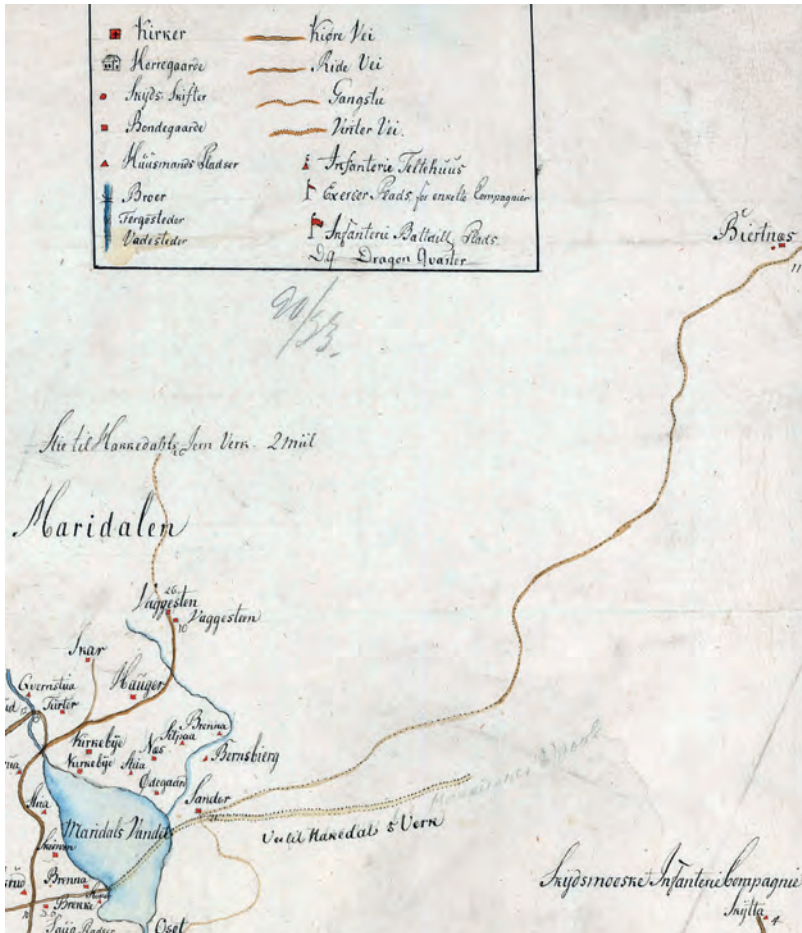 Kirker
Herregaarde
Skyds Skifter
Bondegaarde
Huusmands Pladser
Broer
Færgesteder
Vadesteder
Kiøre Vei
Ride Vei
Gangstie
Vinter Vei.
Infanterie Teltehuus
Exercer Plads for enkelte Compagnier
Infanterie Bataill. Plads
D.q Dragon Qvarter
20/53.
Biertnæs
11
Stie til Hakkedahls Jern Verk. 2 miil
Maridalen
Vaggesten
26
10 Vaggesteen
Skar
Hauger
Qvernstua
Turter
Kirkebye
Kirkebye
Brenna
Næs
Stua
Bernsbierg
Ødegaard
Sander
Maridals Vandet
Vei til Hakedals Verk
Brenna
Brekke
Oset
Skydsmoeske Infanterie Compagnie
Skytta
4